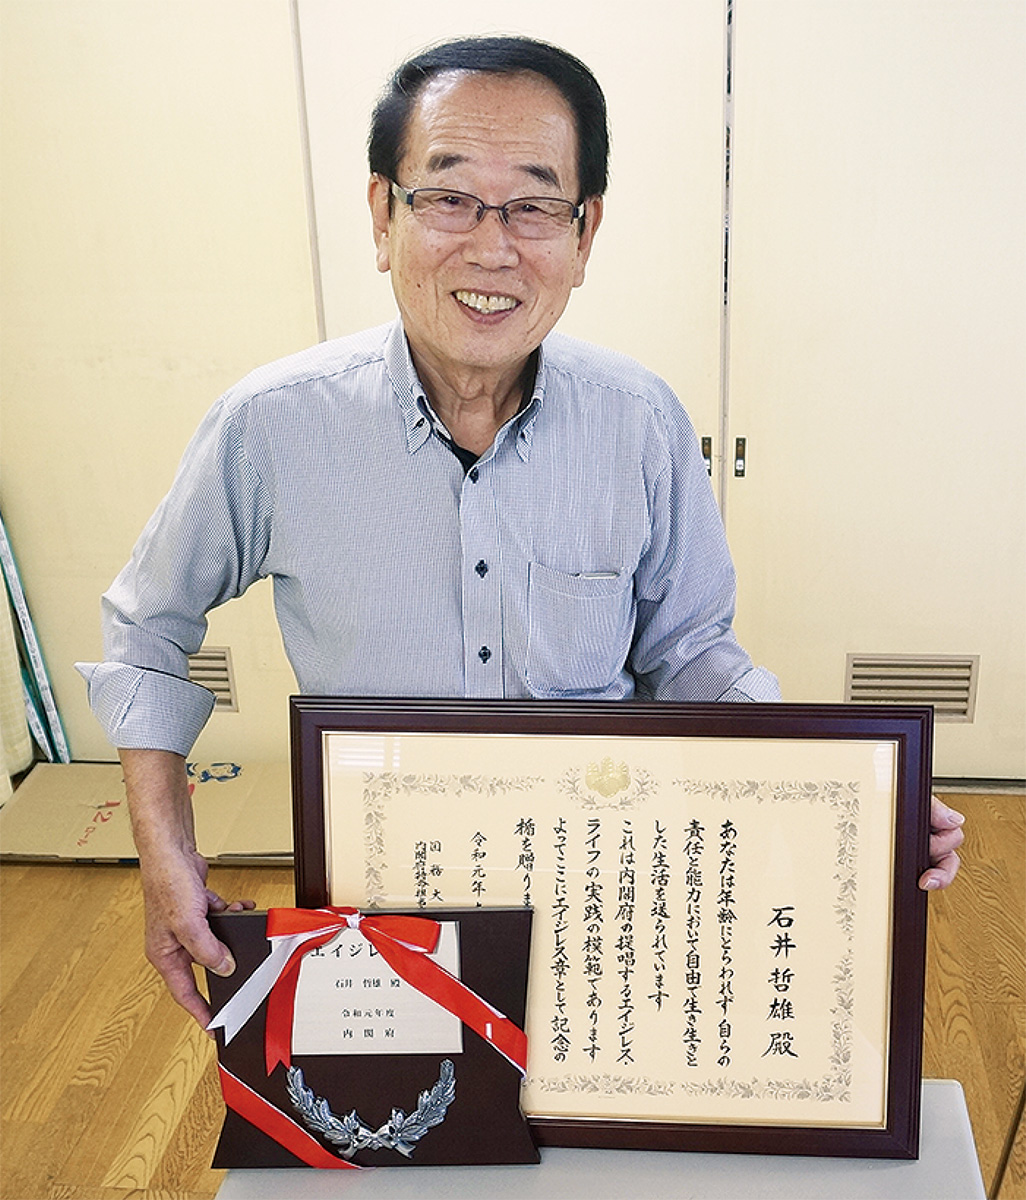 石井哲雄殿
あなたは年齢にとらわれず自らの
責任と能力において自由で生き生きと
した生活を送られています
これは内閣府の提唱するエイジレス・
ライフの実践の模範であります
よってここにエイジレス章として記念の
楯を贈りま
令和元年
国務大
内閣府特命担当
エイジレ
石井 哲雄 殿
令和元年度
内閣府
12